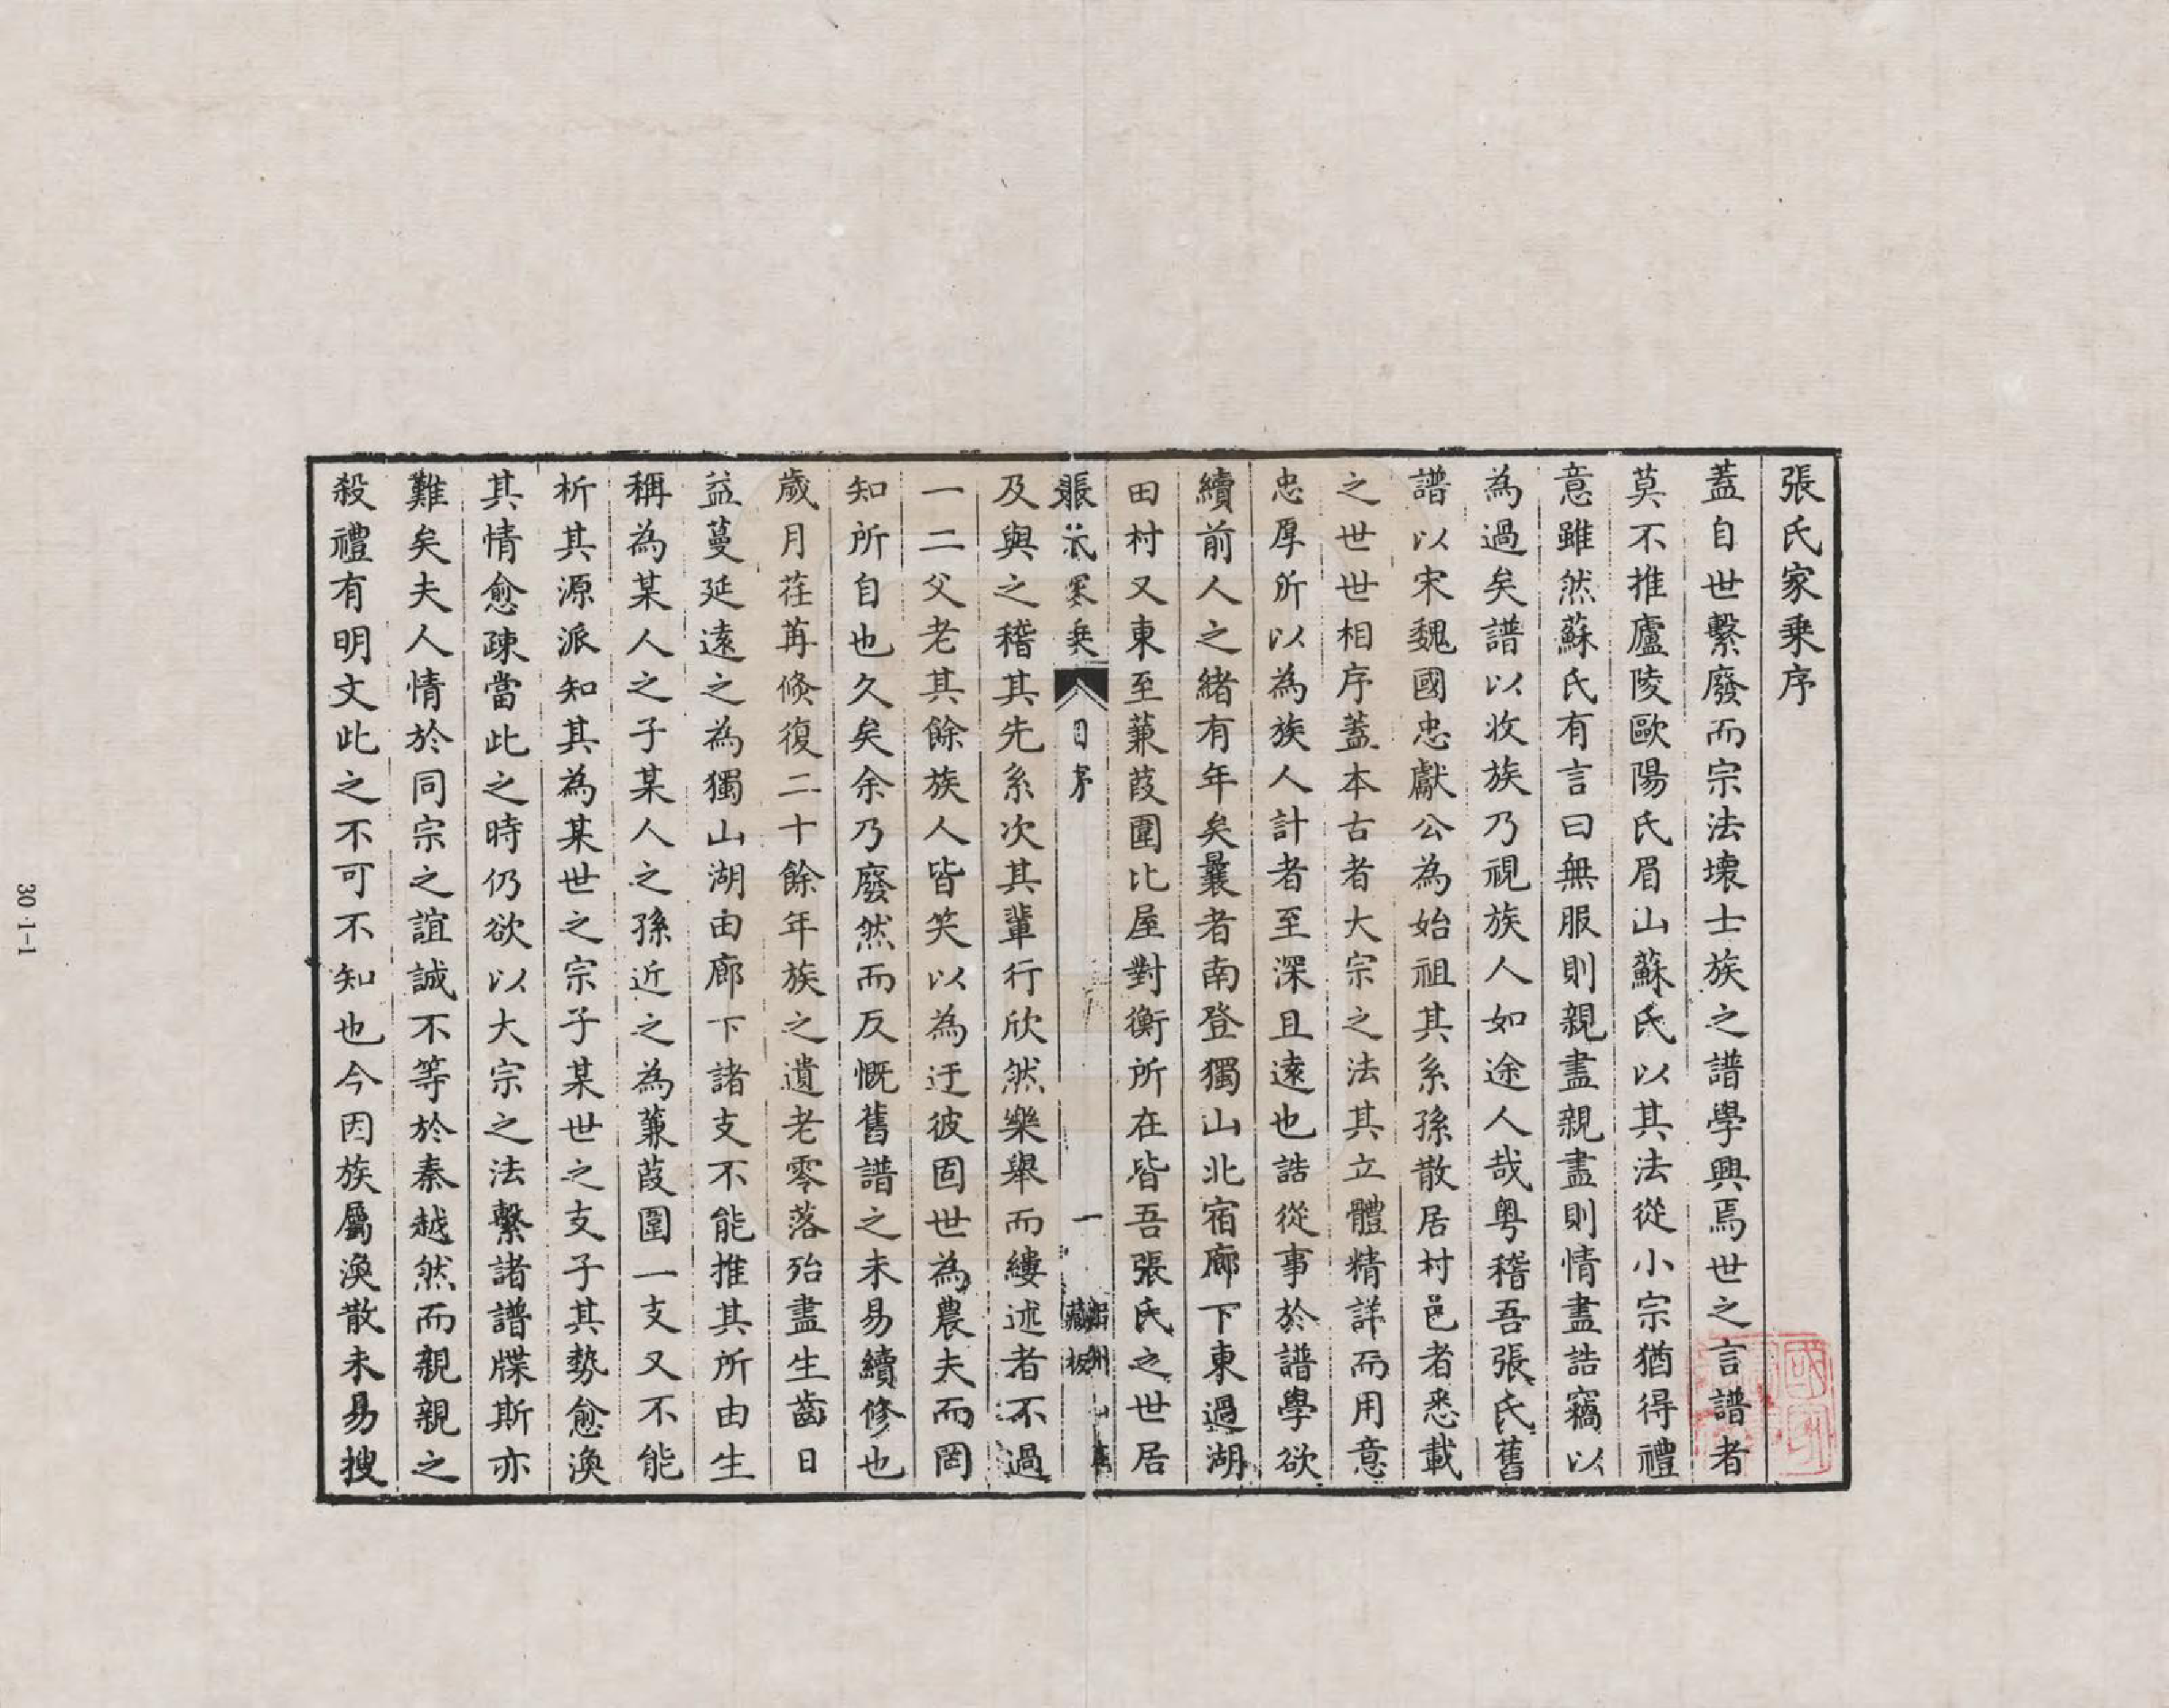 張氏家乘序
蓋自世繫廢而宗法壞士族之譜學興焉世之言譜者
莫不推廬陵歐陽氏眉山蘇氏以其法從小宗猶得禮
意雖然蘇氏有言曰無服則親盡親盡則情盡誥竊以
為過矣譜以收族乃視族人如途人哉粤稽吾張氏舊
譜以宋魏國忠獻公為始祖其系孫散居村邑者悉載
之世世相序蓋本古者大宗之法其立體精詳而用意
忠厚所以為族人計者至深且遠也誥從事於譜學欲
續前人之緒有年矣曩者南登獨山北宿廊下東過湖
田村又東至蒹葭圍比屋對衡所在皆吾張氏之世居
張氏家乘 目序 一 藏板
及與之稽其先系次其輩行欣然樂舉而縷述者不過
一二父老其餘族人皆笑以為迂彼固世為農夫而罔
知所自也久矣余乃廢然而反慨舊譜之未易續修也
歲月荏苒倐復二十餘年族之遺老零落殆盡生齒日
益蔓延遠之為獨山湖田廊下諸支不能推其所由生
稱為某人之子某人之孫近之為蒹葭圍一支又不能
析其源派知其為某世之宗子某世之支子其勢愈渙
其情愈疎當此之時仍欲以大宗之法繫諸譜牒斯亦
難矣夫人情於同宗之誼誠不等於秦越然而親親之
殺禮有明文此之不可不知也今因族屬渙散未易搜
30·1-1